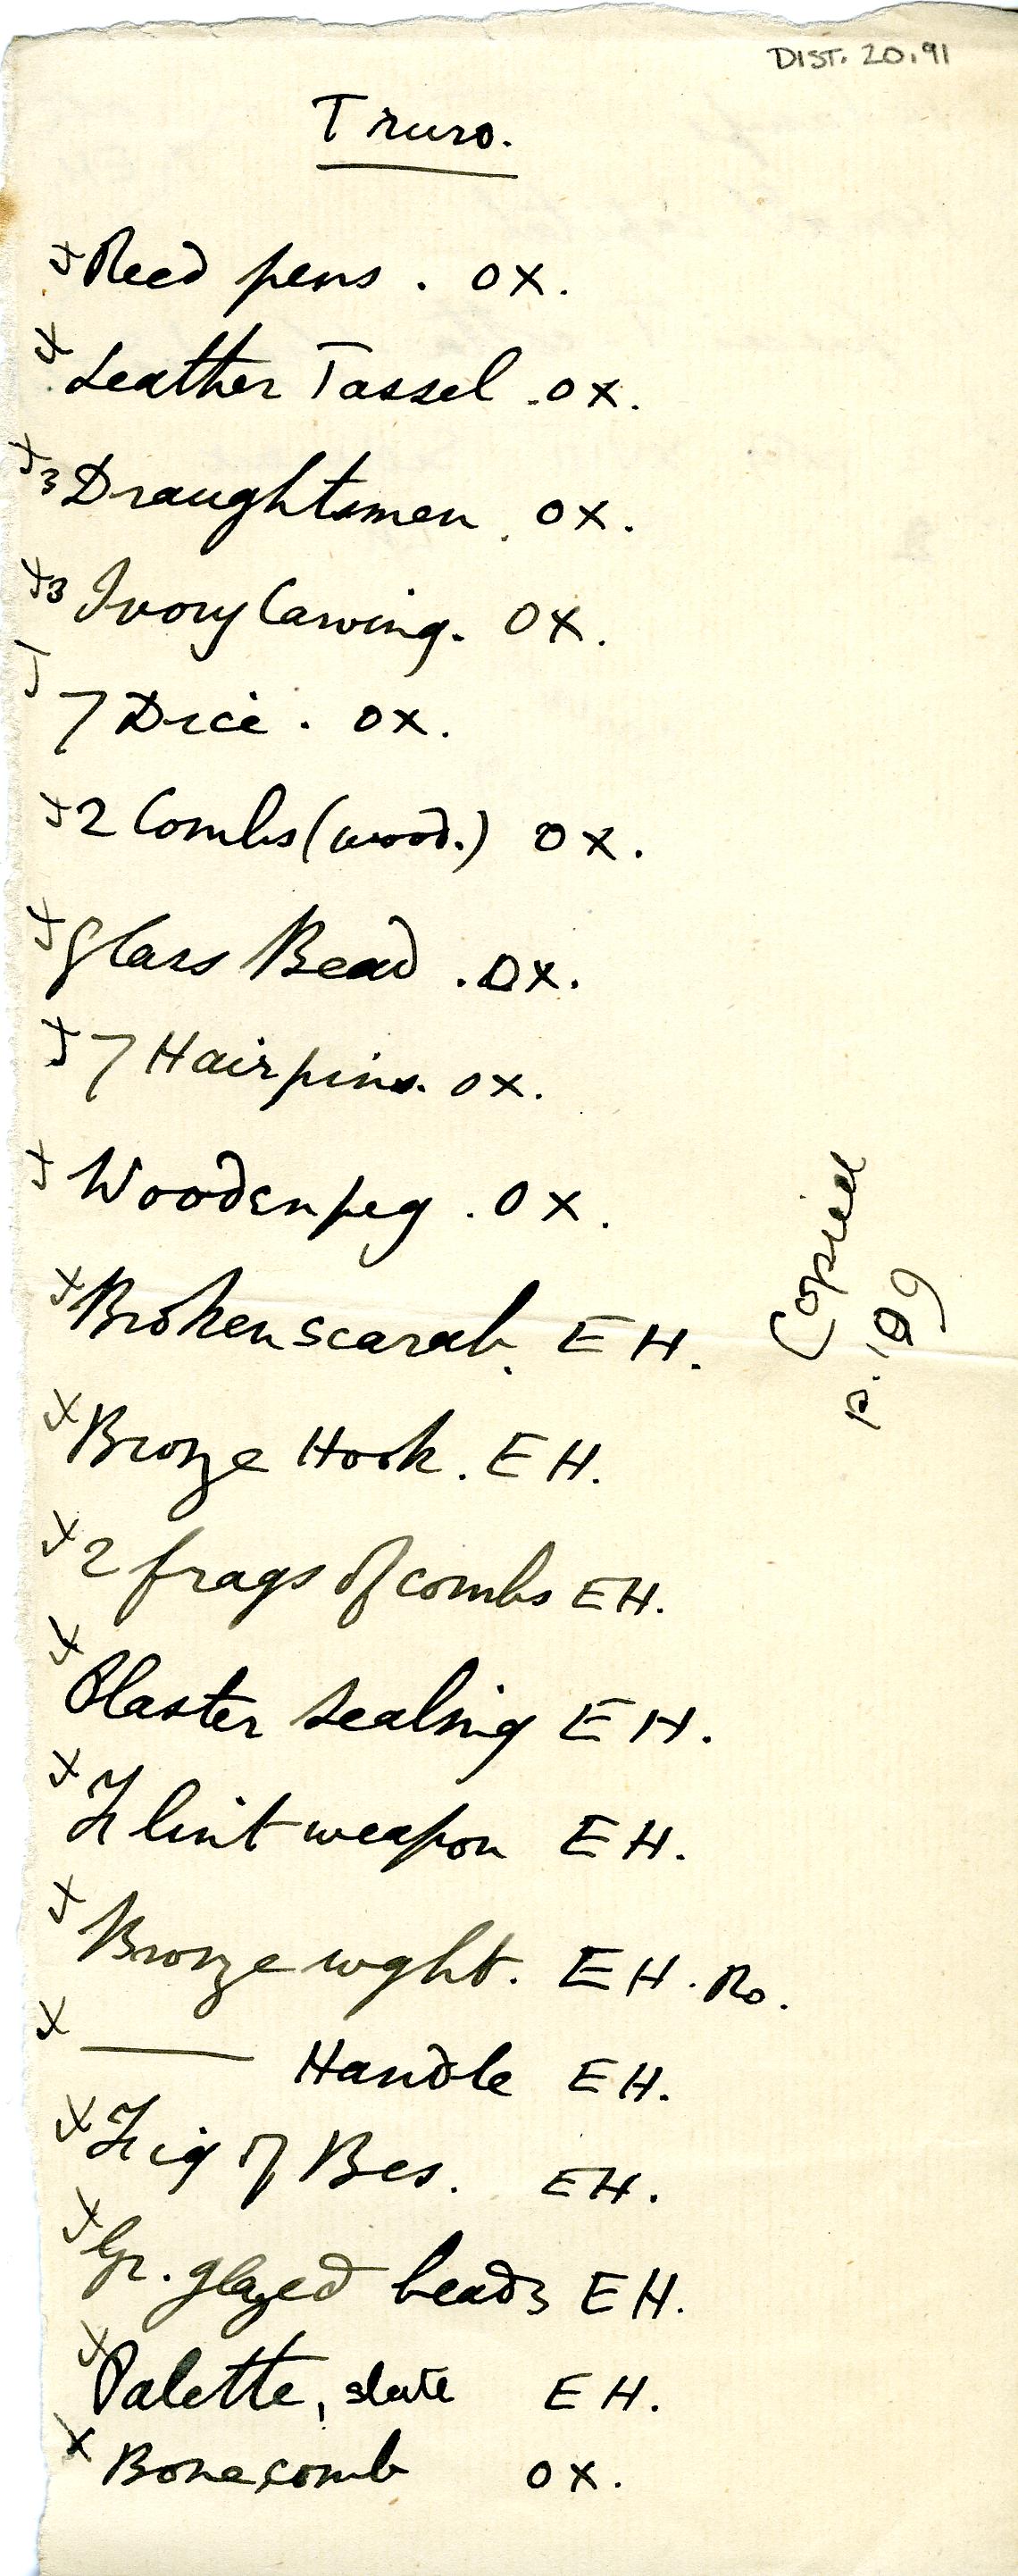 DIST. 20.91
Truro.
x Reed pens . OX.
x Leather Tassel . OX.
x 3 Draughtsmen . OX.
x 3 Ivory Carving. OX.
7 Dice . OX.
x 2 Combs (wood.) OX.
x Glass Bead . OX.
x 7 Hairpins. OX.
x Wooden peg . OX.
x Broken scarab. EH.
x Bronze Hook . EH.
x 2 frags of combs EH.
x Plaster sealing EH.
x Flint weapon EH.
x Bronze wght. EH. Ro.
x —— Handle EH.
x Fig of Bes. EH.
x Gr. glazed beads EH.
x Palette, slate EH.
x Bone comb OX.
Copied
p. 199